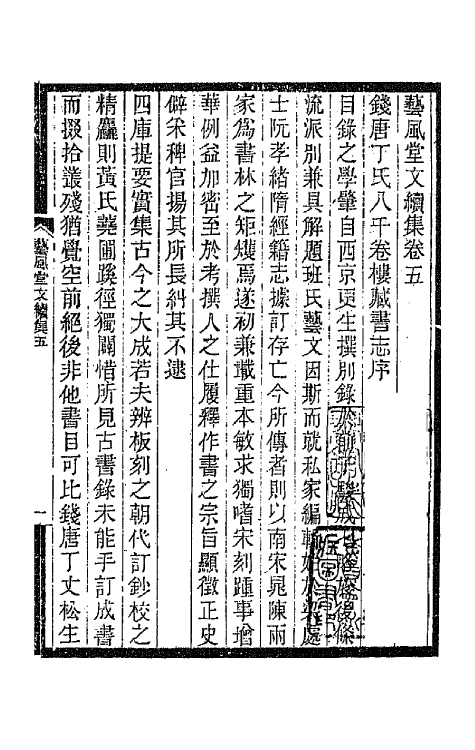 藝風堂文續集卷五
錢唐丁氏八千卷樓藏書志序
目錄之學肇自西京更生撰別錄
流派別兼具解題班氏藝文因斯而就私家編處
士阮孝緒隋經籍志據訂存亡今所傳者則以南宋晁陳兩
家爲書林之矩矱焉遂初兼載重本敏求獨嗜宋刻踵事增
華例益加密至於考撰人之仕履釋作書之宗旨顯徵正史
僻采稗官揚其所長糾其不逮
四庫提要實集古今之大成若夫辨板刻之朝代訂鈔校之
精麤則黃氏蕘圃蹊徑獨闢惜所見古書錄未能手訂成書
而掇拾叢殘猶覺空前絕後非他書目可比錢唐丁丈松生
藝風堂文續集五
一